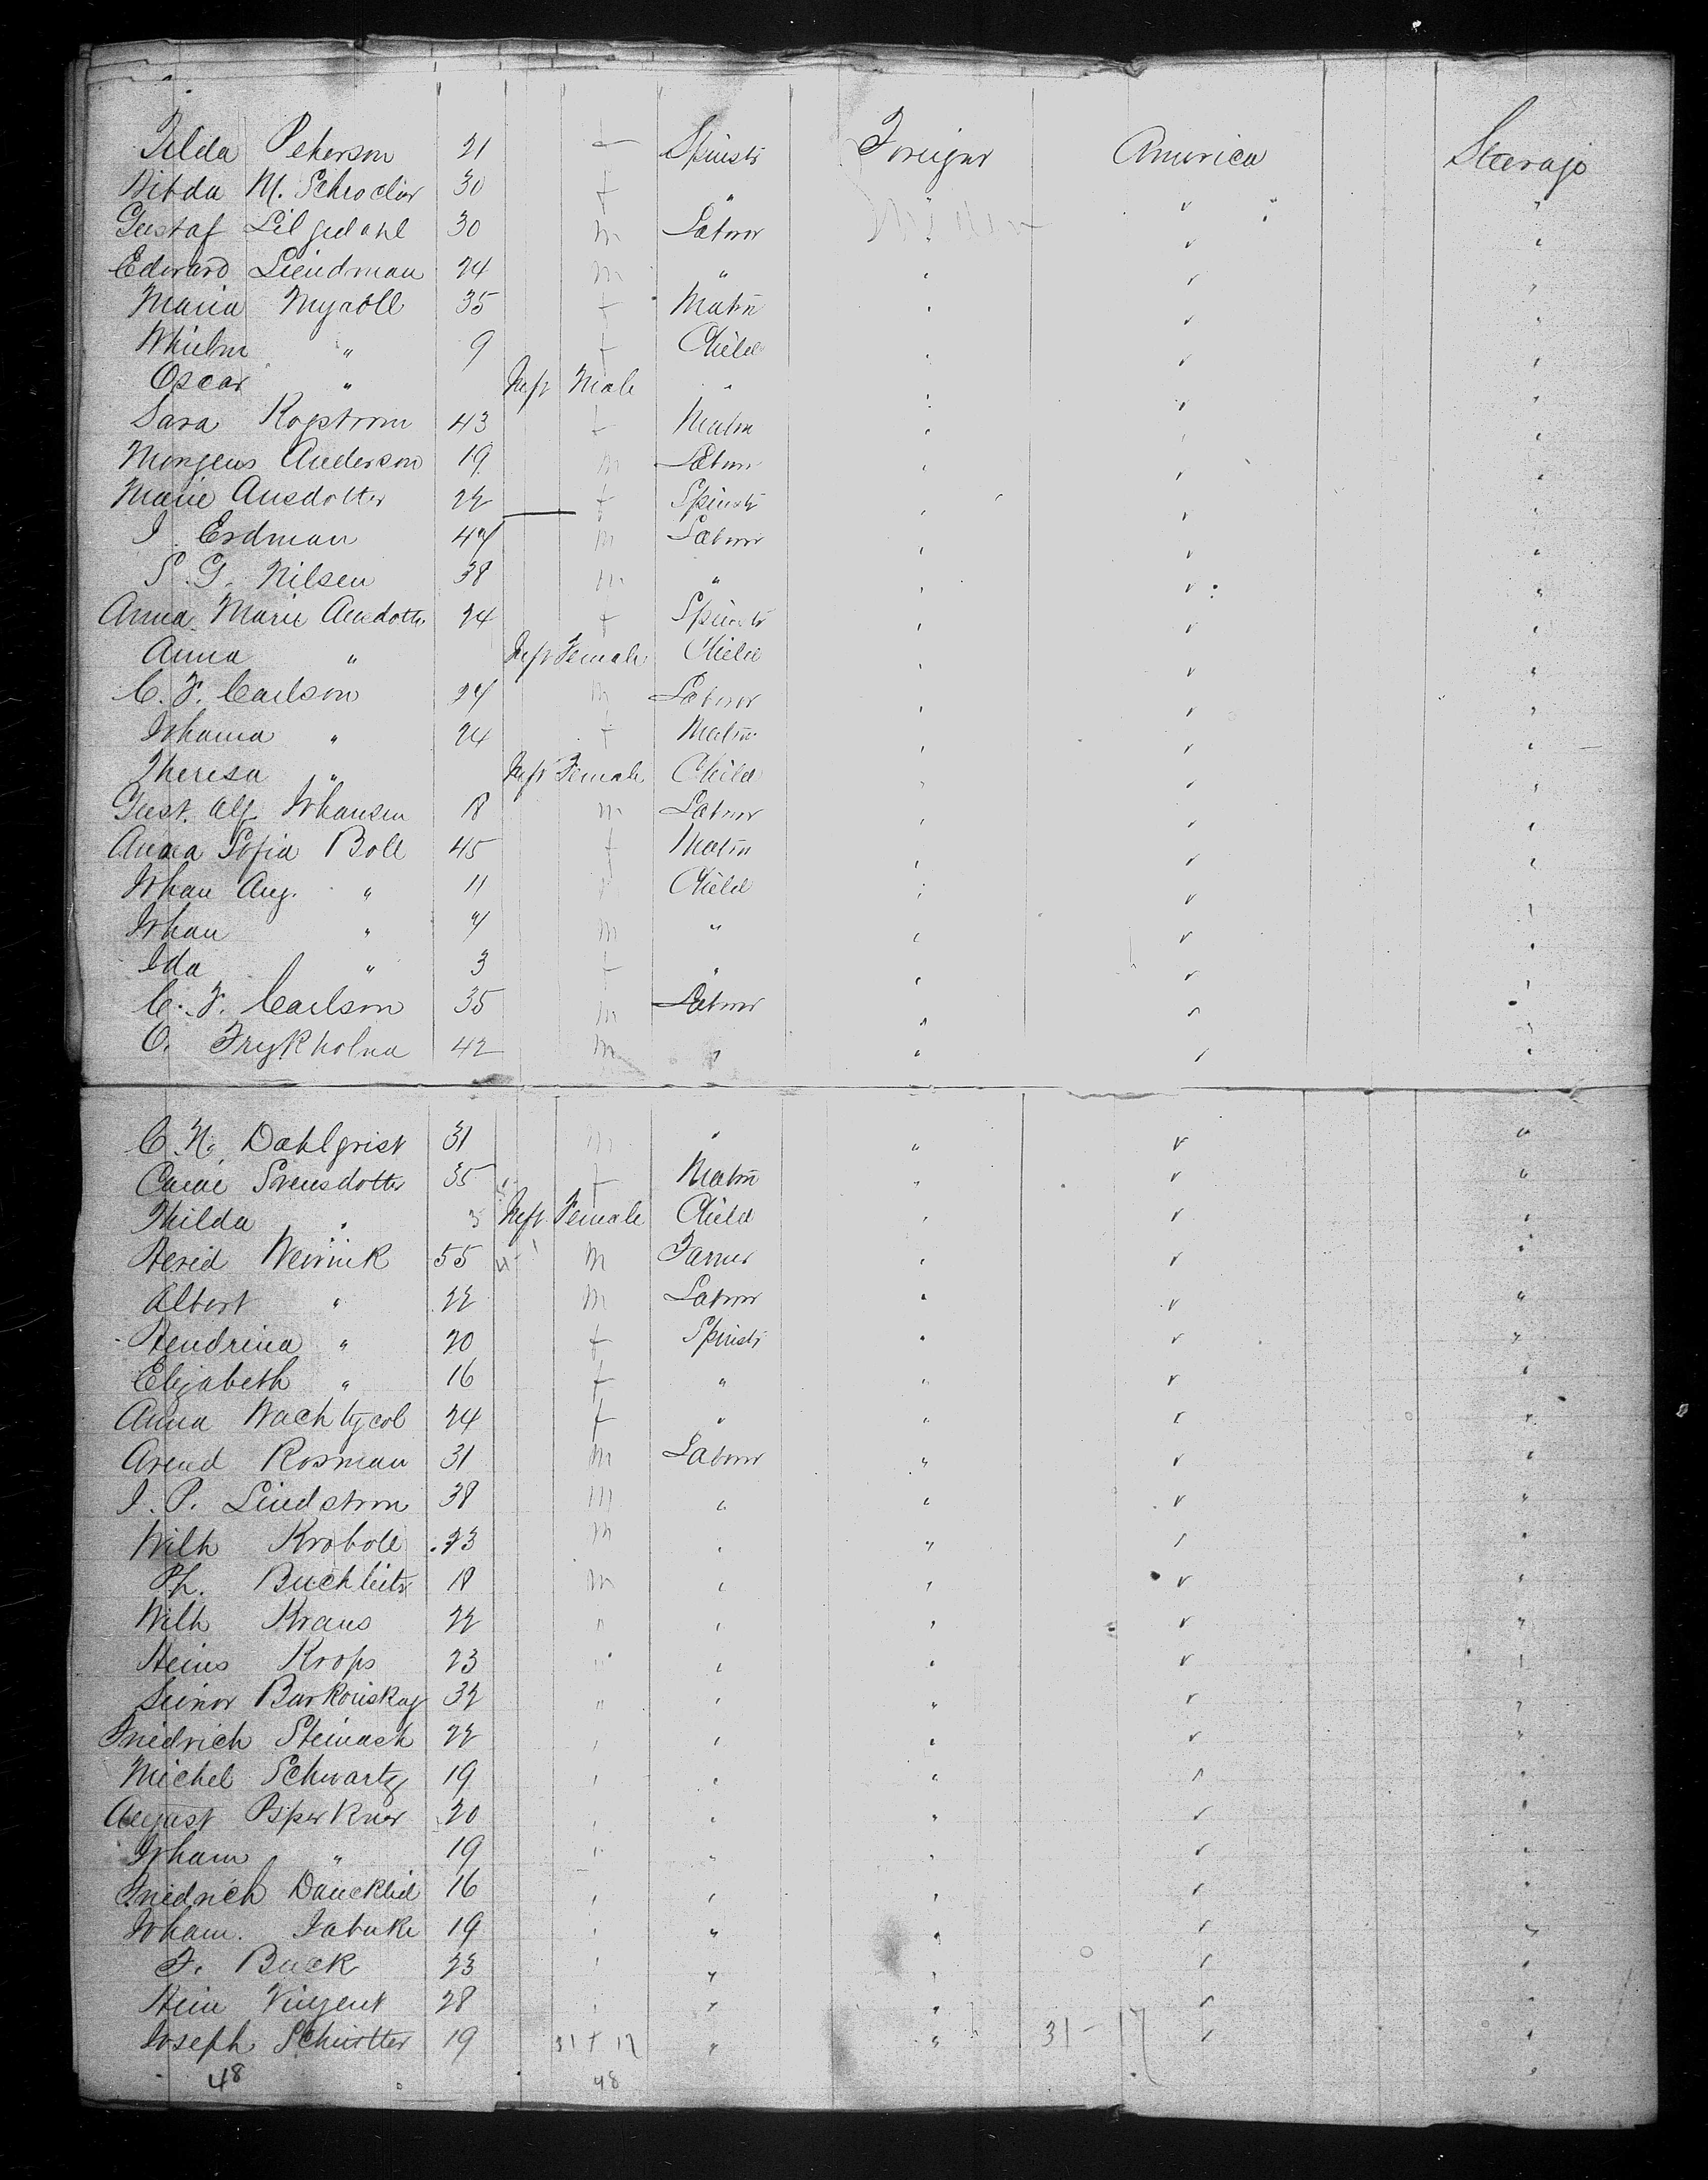 Tilda Peterson 21 f Spinstr Foreignr America Steerage
Bibda M. Schroclar 30 f " " " "
Gustaf Lilgedahl 30 m Labour " " "
Edward Lindman 24 m " " " "
Maria Myrbll 35 f Matrn " " "
Whielm " 9 f Child " " "
Oscar " Inft Male " " " "
Sara Rogstrom 43 f Matrn " " "
Mongens Anderson 19 m Labour " " "
Marie Ansdotter 22 f Spinstr " " "
I. Erdman 47 m Labour " " "
S. G. Nilsen 38 m " " " "
Anna Marie Ansdottr 24 f Spinstr " " "
Anna " Inft Female Child " " "
C. F. Carlson 27 m Labour " " "
Johanna " 24 f Matrn " " "
Theresa " Inft Female Child " " "
Gust. Alf Johansen 18 m Labour " " "
Anna Sofia Boll 45 f Matrn " " "
Johan Aug. " 11 Child " " "
Johan " 7 m " " " "
Ida " 3 f " " " "
C. F. Carlson 35 m Labour " " "
O. Frykholm 42 m " " " "
C. N. Dahlgrist 31 m " " " "
Carai Svensdottr 35 f Matrn " " "
Thilda " 3 Inft Female Child " " "
Herid Wevrink 55 m Farmer " " "
Albert " 22 m Labour " " "
Hendrina " 20 f Spinstr " " "
Elizabeth " 16 f " " " "
Anna Wachtycol 24 f " " " "
Arend Rosman 31 m Labour " " "
I. P. Lindstrom 38 m " " " "
Wilh Kroboll 23 m " " " "
Ph. Buchleitr 18 m " " " "
Wilh Kraus 22 " " " " "
Heins Krops 23 " " " " "
Seinor Barkouskay 32 " " " " "
Friedrich Steinash 22 " " " " "
Michel Schwartz 19 " " " " "
August Piperkner 20 " " " " "
Joham " 19 " " " " "
Friedrich Dauckhil 16 " " " " "
Joham. Jabuke 19 " " " " "
F. Buck 23 " " " " "
Hein Vinzent 28 " " " " "
Joseph Schustter 19 31 + 17 " " 31 - 17 " "
48 48